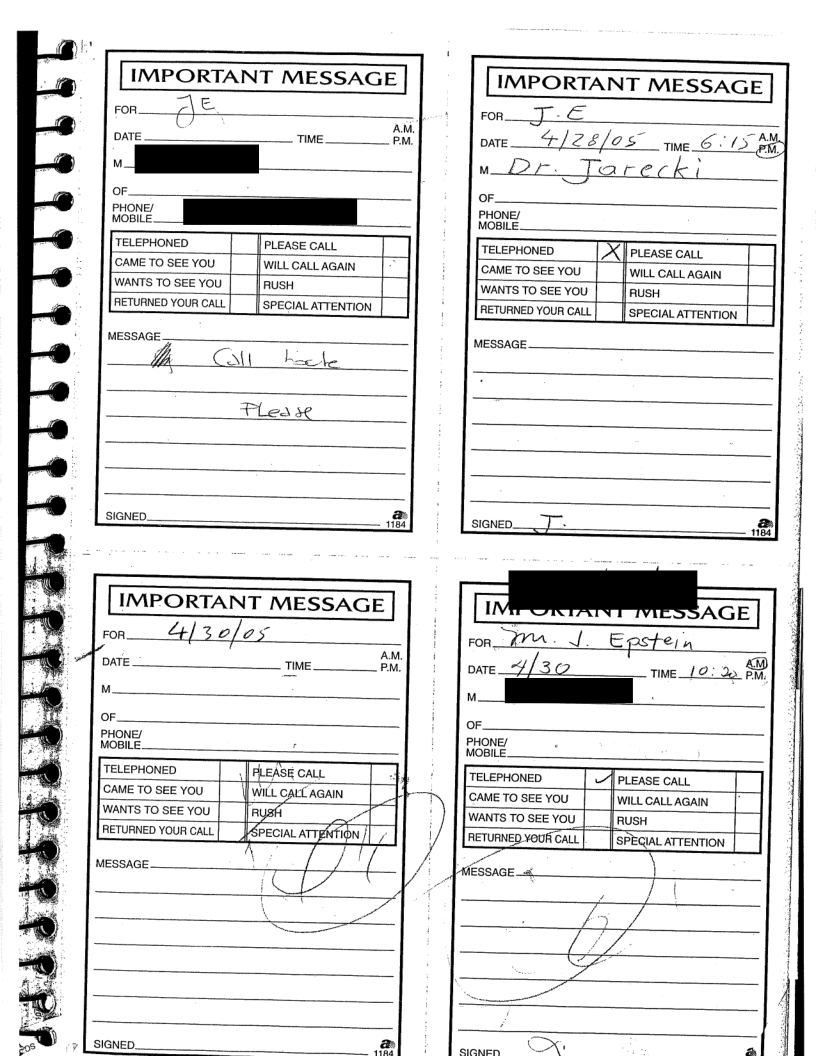 IMPORTANT MESSAGE
FOR JE
DATE TIME A.M. P.M.
M
OF
PHONE/
MOBILE
TELEPHONED PLEASE CALL
CAME TO SEE YOU WILL CALL AGAIN
WANTS TO SEE YOU RUSH
RETURNED YOUR CALL SPECIAL ATTENTION
MESSAGE
Call
Please
SIGNED
1184
IMPORTANT MESSAGE
FOR J.E
DATE 4/28/05 TIME 6:15 A.M. P.M.
M Dr. Jarecki
OF
PHONE/
MOBILE
TELEPHONED X PLEASE CALL
CAME TO SEE YOU WILL CALL AGAIN
WANTS TO SEE YOU RUSH
RETURNED YOUR CALL SPECIAL ATTENTION
MESSAGE
SIGNED J.
1184
IMPORTANT MESSAGE
FOR 4/30/05
DATE TIME A.M. P.M.
M
OF
PHONE/
MOBILE
TELEPHONED PLEASE CALL
CAME TO SEE YOU WILL CALL AGAIN
WANTS TO SEE YOU RUSH
RETURNED YOUR CALL SPECIAL ATTENTION
MESSAGE
SIGNED
1184
IMPORTANT MESSAGE
FOR Mr. J. Epstein
DATE 4/30 TIME 10:20 A.M. P.M.
M
OF
PHONE/
MOBILE
TELEPHONED ✓ PLEASE CALL
CAME TO SEE YOU WILL CALL AGAIN
WANTS TO SEE YOU RUSH
RETURNED YOUR CALL SPECIAL ATTENTION
MESSAGE
SIGNED